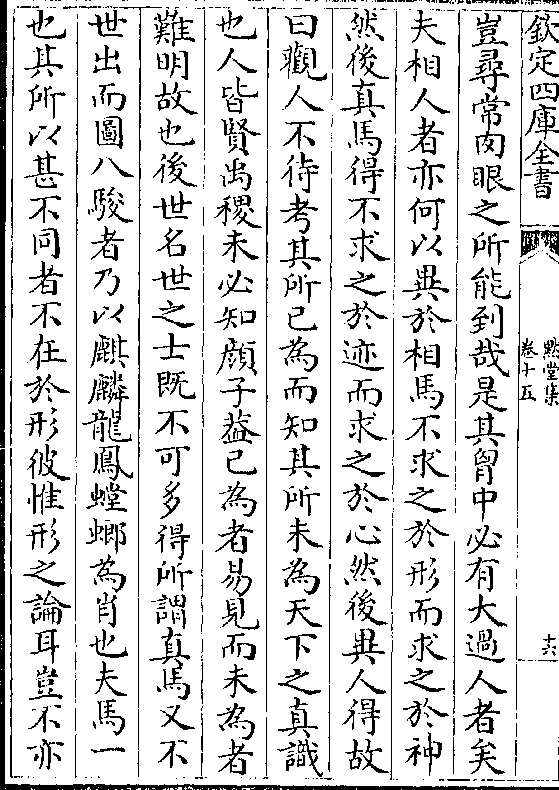 欽定四庫全書
默堂集
卷十五
十六
豈尋常肉眼之所能到哉是其胷中必有大過人者矣
夫相人者亦何以異於相馬不求之於形而求之於神
然後真馬得不求之於迹而求之於心然後異人得故
曰觀人不待考其所已為而知其所未為天下之真識
也人皆賢禹稷未必知顔子葢已為者易見而未為者
難明故也後世名世之士既不可多得所謂真馬又不
世出而圖八駿者乃以麒麟龍鳳螳螂為肖也夫馬一
也其所以甚不同者不在於形彼惟形之論耳豈不亦